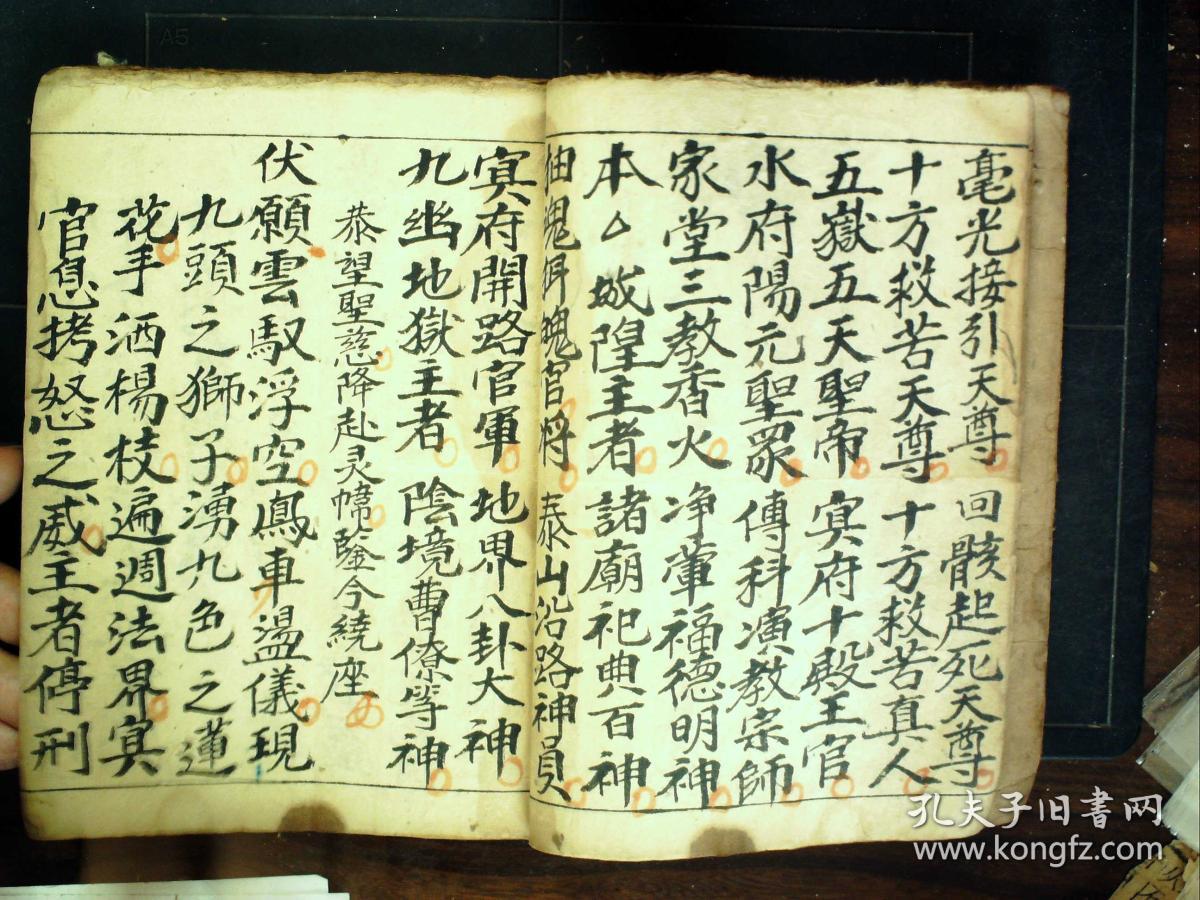 毫光接引天尊 回骸起死天尊
十方救苦天尊 十方救苦真人
五嶽五天聖帝 冥府十殿王官
水府陽元聖眾 傳科演教宗師
家堂三教香火 净葷福德明神
本△城隍主者 諸廟祀典百神
魄官将 泰山沿路神員
冥府開路官軍 地界八卦大神
九幽地獄主者 陰境曹僚等神
恭望聖慈降赴灵幃鑒今繞座
伏願雲馭浮空鳳車盪儀現
九頭之獅子湧九色之蓮
花手洒楊枝遍週法界冥
官息拷怒之威主者停刑
孔夫子旧书网
www.kongfz.com
A5